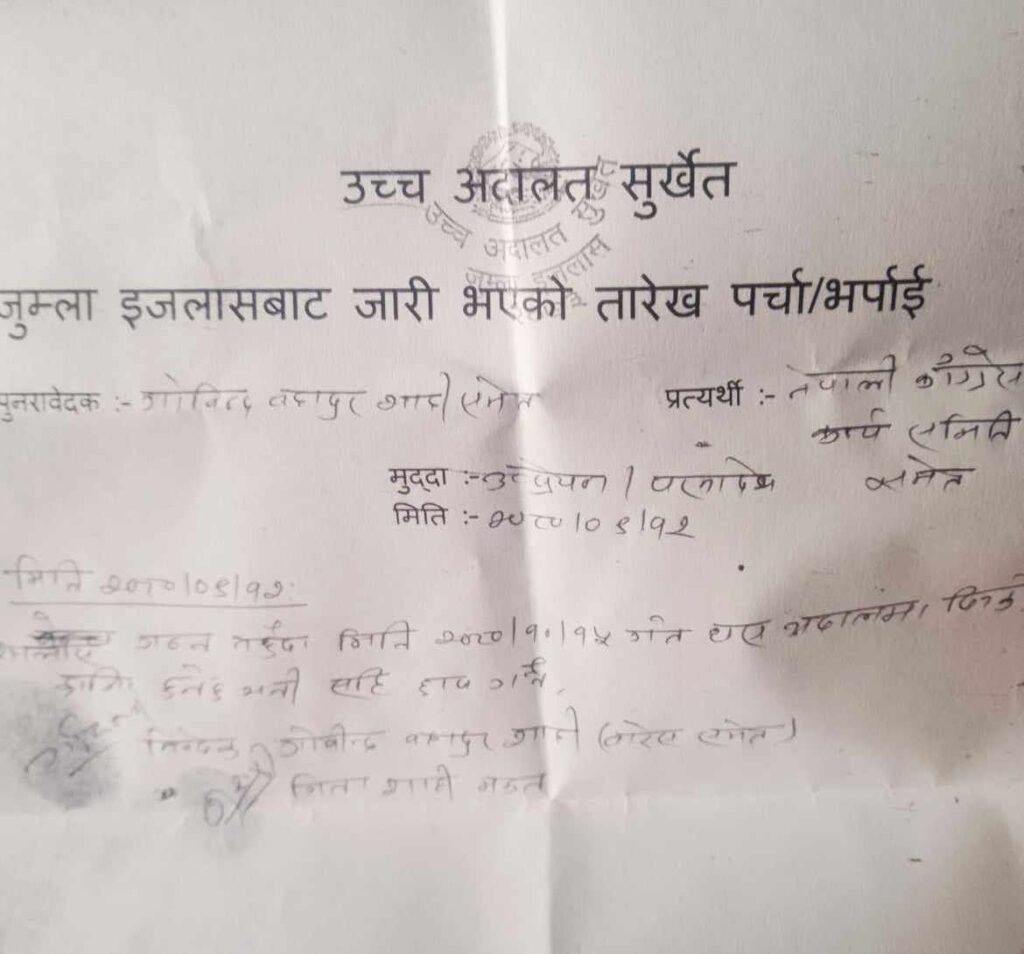 उच्च अदालत सुर्खेत
उच्च अदालत सुर्खेत
जुम्ला इजलास
जुम्ला इजलासबाट जारी भएको तारेख पर्चा/भर्पाई
पुनरावेदक :- गोविन्द बहादुर शाही समेत
प्रत्यर्थी :- नेपाली काँग्रेस
कार्य समिति
समेत
मुद्दा :- उत्प्रेषण /
मिति :- २०८०/०९/१२
मिति २०८०/०९/१२
मिति २०८०/१०/१५ गते यस अदालतमा
हाजिर हुनेछु भनी सहि छाप गर्ने
निवेदक गोवीन्द बहादुर शाही (वारेस समेत)
" शाही